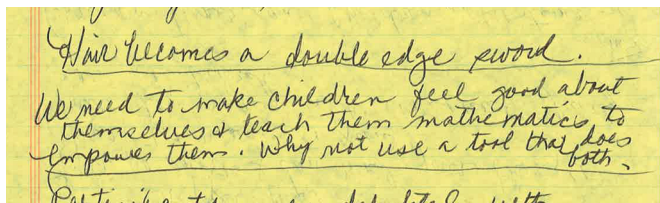 Hair becomes a double edge sword.
We need to make children feel good about
themselves & teach them mathematics to
empower them. Why not use a tool that does
both.